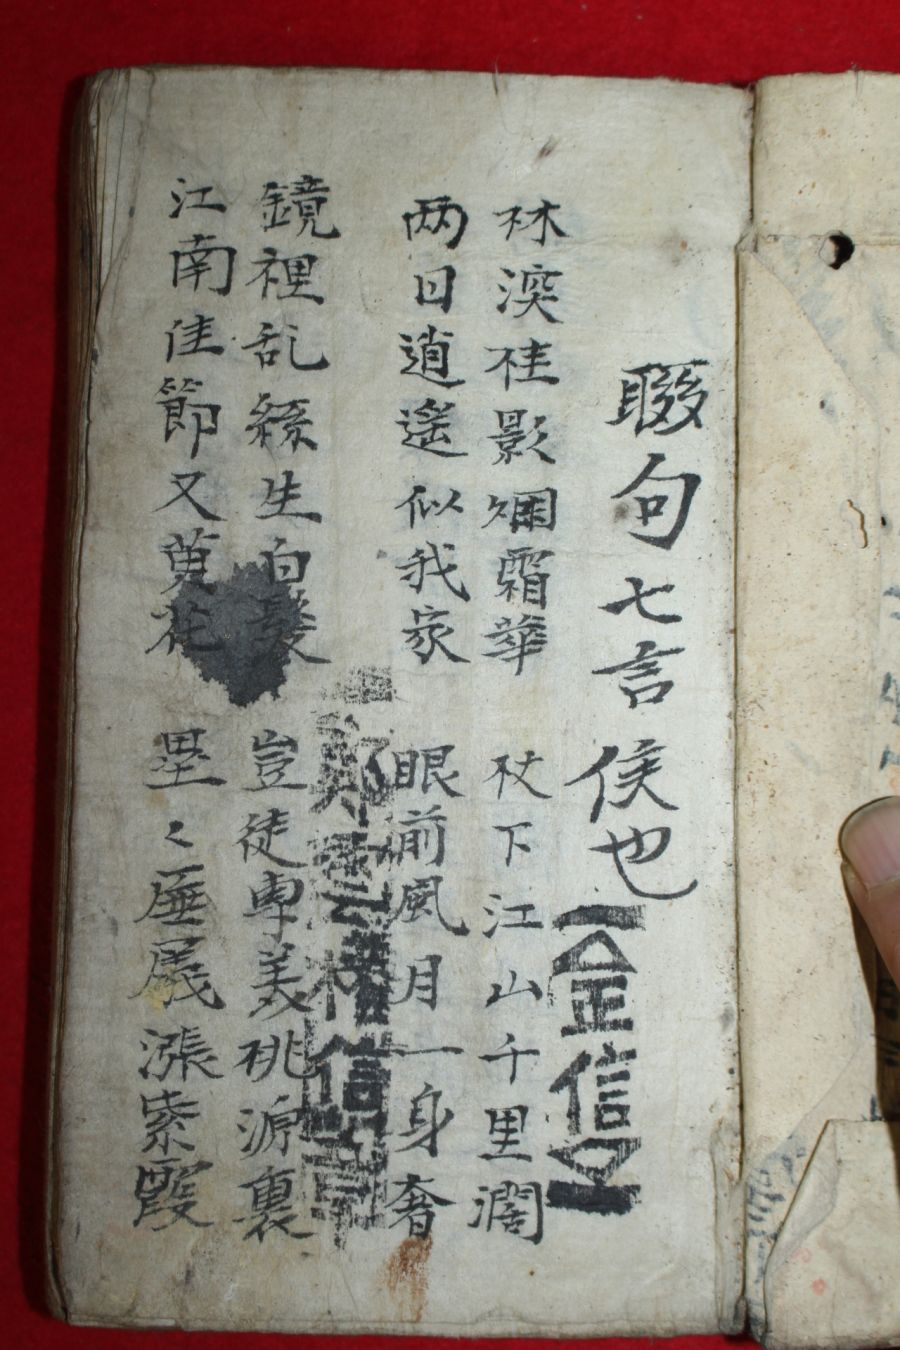 聮句七言侯也
金信
林深桂影爛霜華 杖下江山千里濶
两日逍遙似我家 眼前風月一身奢
信
鏡裡乱絲生白髮 豈徒專美桃源裏
江南佳節又黄花 壘〻層嶂漲紫霞